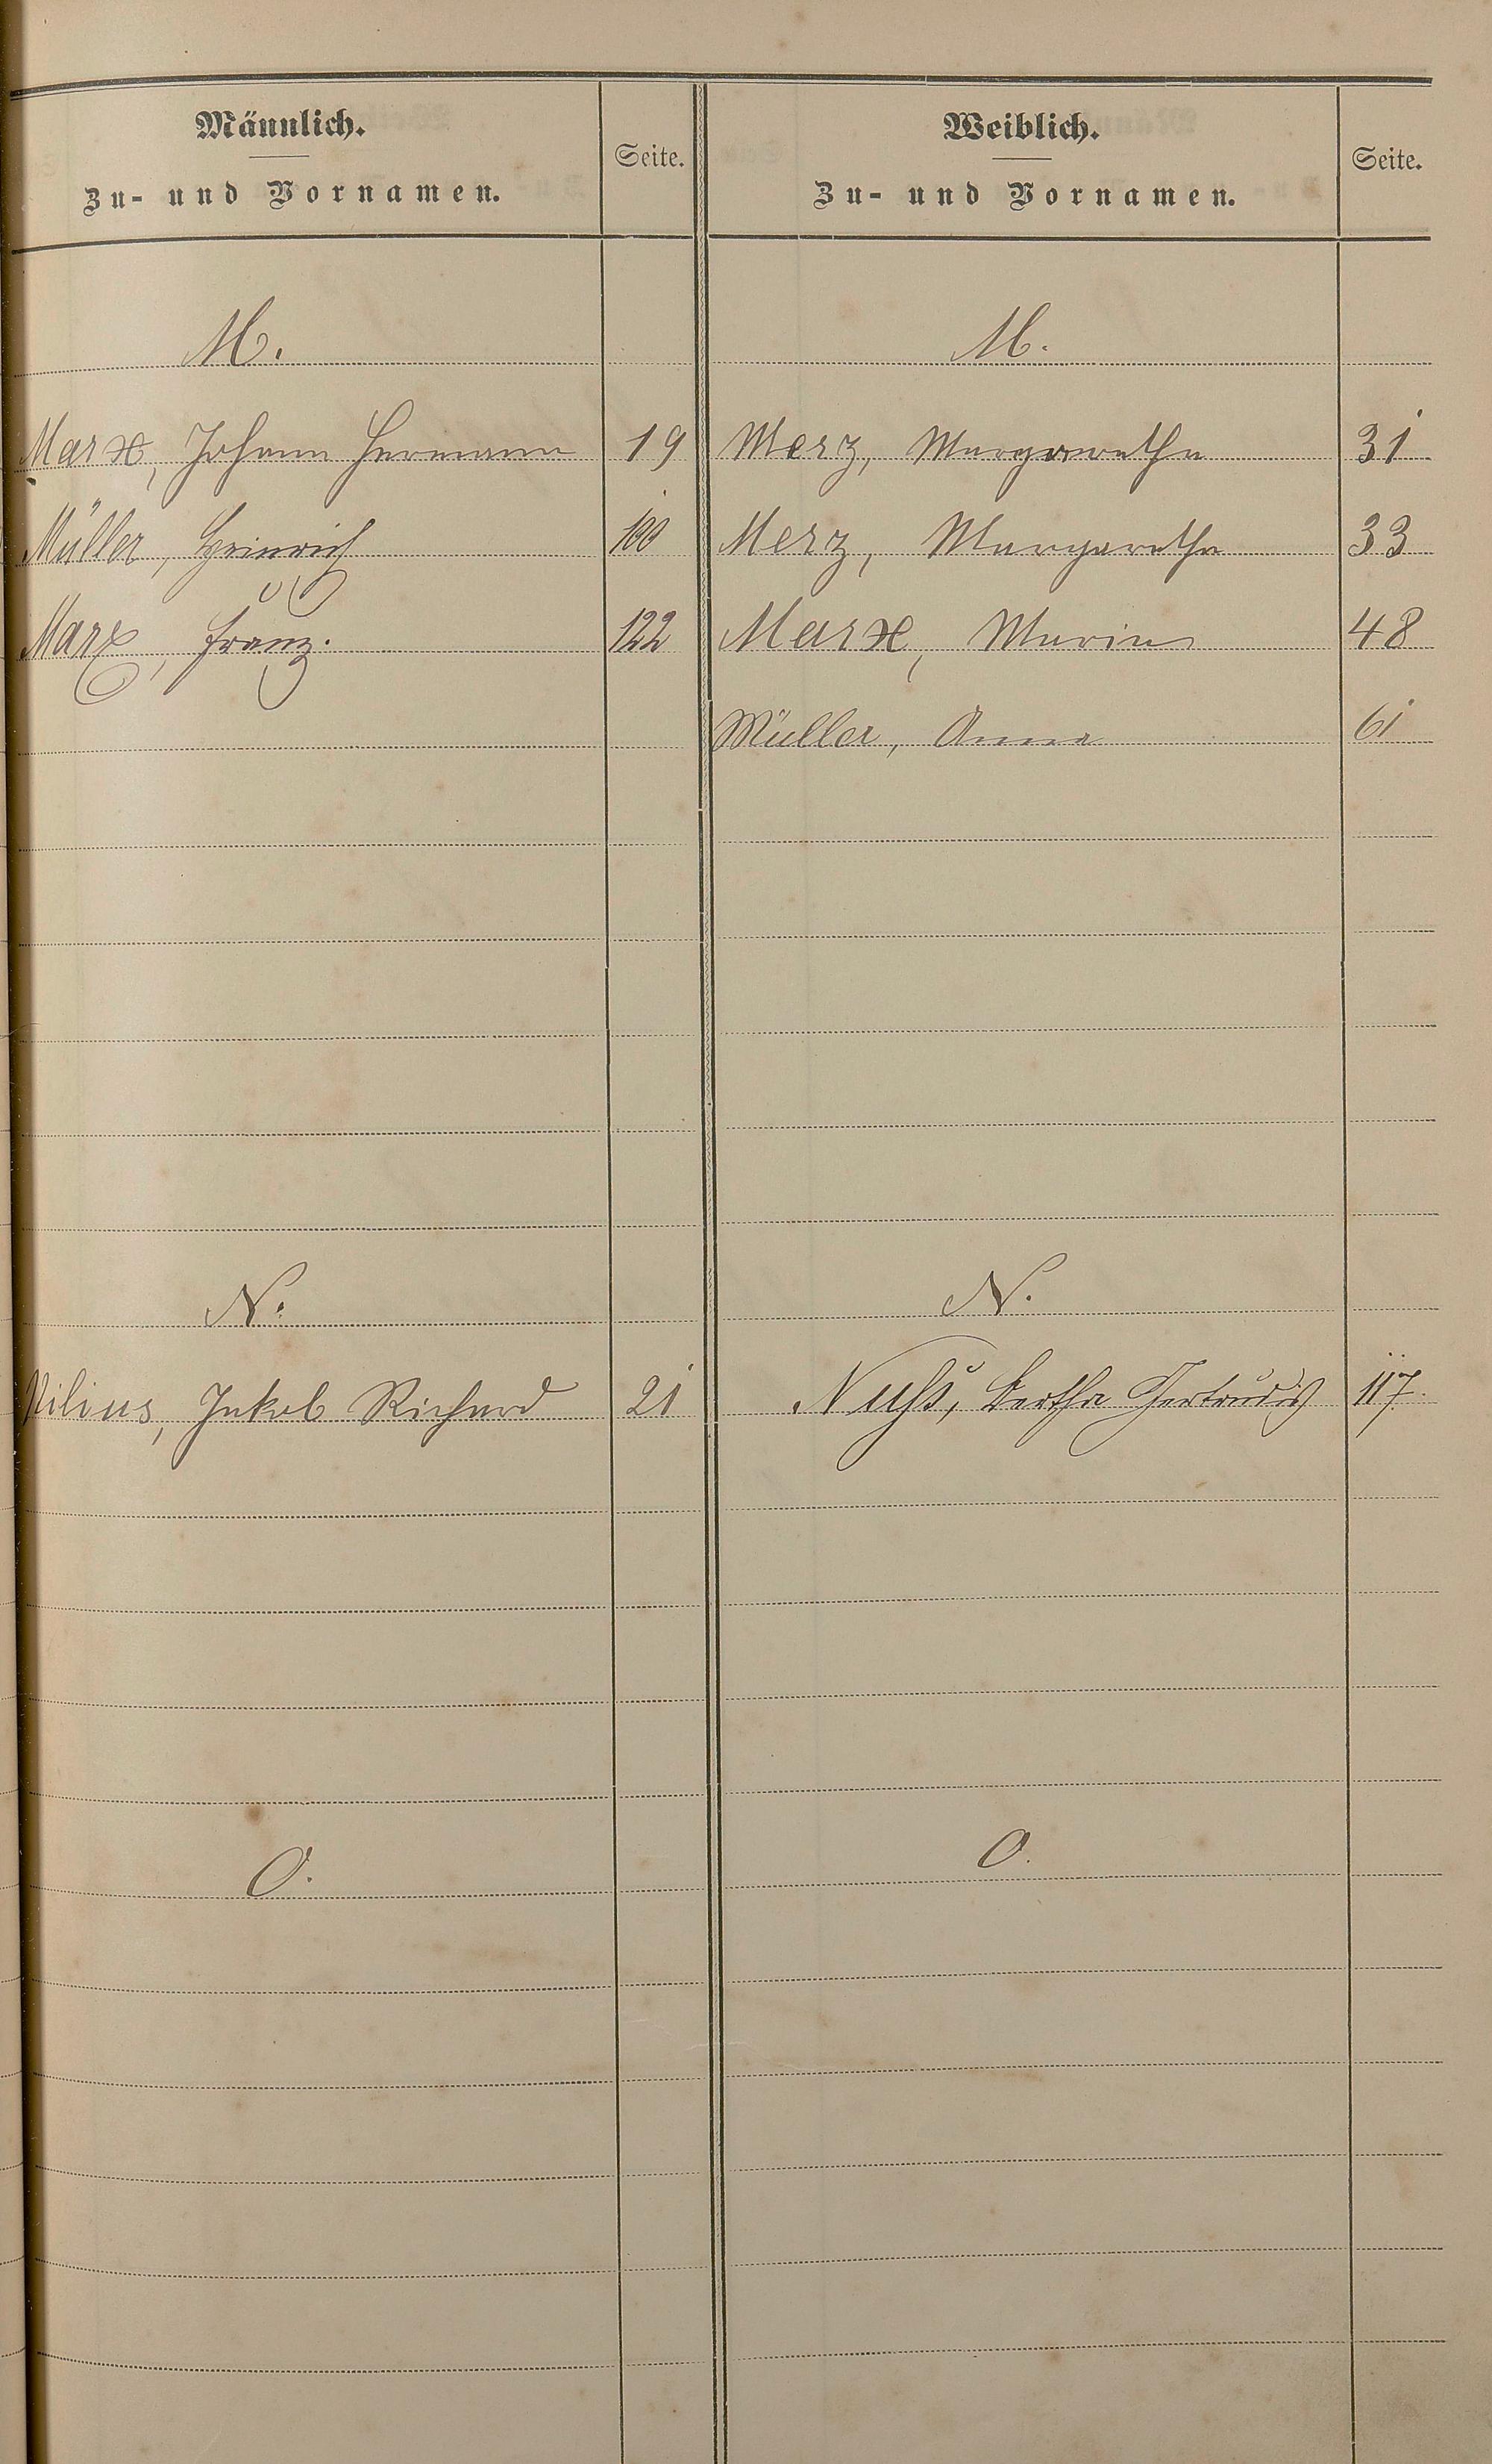 Männlich.
Zu- und Vornamen.
Seite.
Weiblich.
Zu- und Vornamen.
Seite.
M.
M.
Marx, Johann Hermann 19
Merz, Margaretha 31
Müller, Heinrich 100
Merz, Margaretha 33
Marx, Franz. 122
Marx, Maria 48
Müller, Anna 61
N.
N.
Nilius, Jakob Richard 21
Nuhs, Bertha 117.
O.
O.